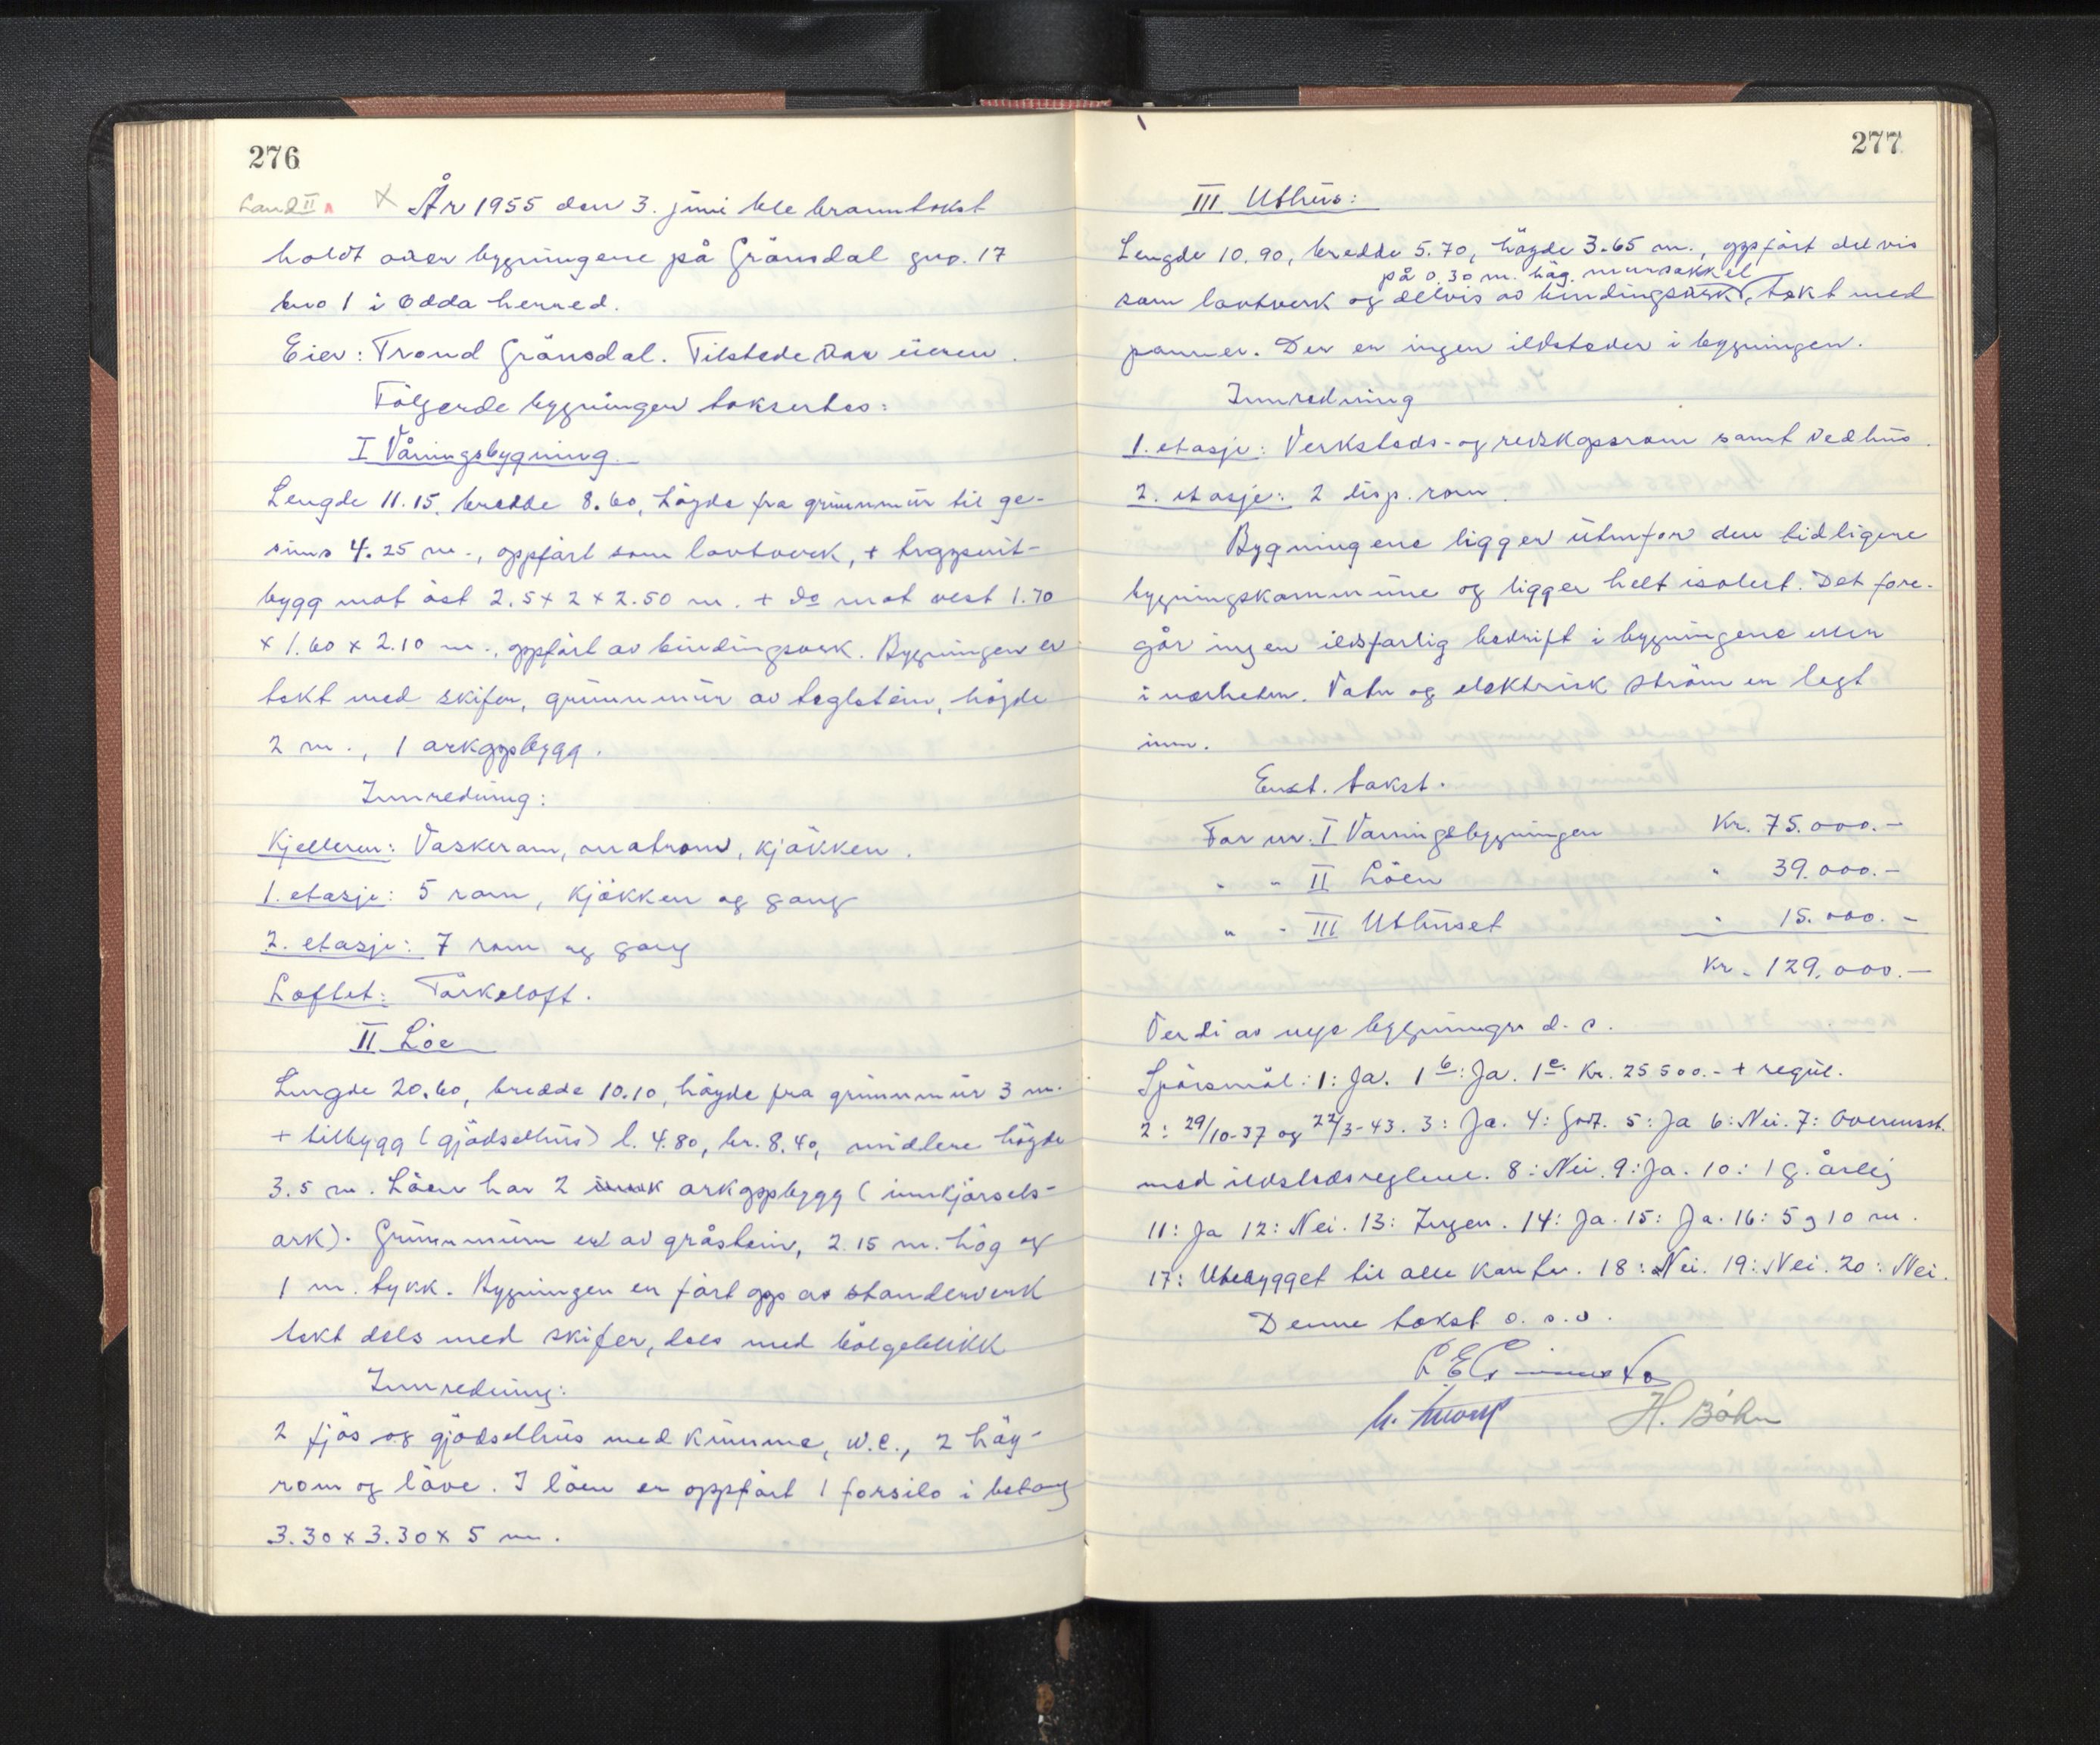 276
Land II
× År 1955 den 3. juni ble branntakst
holdt over bygningene på Grönsdal gno. 17
bno 1 i Odda herred.
Eier: Trond Grönsdal. Tilstede var eieren.
Følgende bygninger taksertes:
I Våningsbygning.
Lengde 11.15, bredde 8.60, høyde fra grunnmur til ge-
sims 4.25 m., oppført som lavtverk, + trappeut-
bygg mot øst 2.5 × 2 × 2.50 m. + do mot vest 1.70
× 1.60 × 2.10 m., oppført av bindingsverk. Bygningen er
tekt med skifer, grunnmur av teglstein, høyde
2 m., 1 arkoppbygg.
Innredning:
Kjelleren: Vaskerom, matrom, kjøkken.
1. etasje: 5 rom, kjøkken og gang
2. etasje: 7 rom og gang
Loftet: Tørkeloft.
II Löe
Lengde 20.60, bredde 10.10, høyde fra grunnmur 3 m.
+ tilbygg (gjødselhus) l. 4.80, br. 8.40, midlere høyde
3.5 m. Löen har 2 arkoppbygg (innkjørsels-
ark). Grunnmuren er av gråstein, 2.15 m. høg og
1 m. tykk. Bygningen er ført opp av standerverk
tekt dels med skifer, dels med bølgeblikk
Innredning:
2 fjøs og gjødselhus med kumme, w.c., 2 høy-
rom og låve. I löen er oppført 1 forsilo i betong
3.30 × 3.30 × 5 m.
277
III Uthus:
Lengde 10.90, bredde 5.70, høyde 3.65 m., oppført delvis
på 0.30 m. høg mursokkel
som lavtverk og delvis av bindingsverk, tekt med
panner. Der er ingen ildsteder i bygningen.
Innredning
1. etasje: Verksteds- og redskapsrom samt vedhus.
2. etasje: 2 disp. rom.
Bygningene ligger utenfor den tidligere
bygningskommune og ligger helt isolert. Det fore-
går ingen ildsfarlig bedrift i bygningene eller
i nærheten. Vatn og elektrisk strøm er lagt
inn.
Enst. takst.
For nr. I Våningsbygningen Kr. 75.000.-
" " II Löen " 39.000.-
" " III Uthuset " 15.000.-
Kr. 129.000.-
Verdi av nye bygninger d. s.
Spørsmål: 1: Ja. 1 b: Ja. 1 c. Kr. 25500.- + regul.
2: 29/10-37 og 22/3-43. 3: Ja. 4: God. 5: Ja 6: Nei. 7: Overensst.
med ildstedsreglene. 8: Nei. 9: Ja. 10: 1 g. årlig
11: Ja 12: Nei. 13: Ingen. 14: Ja. 15: Ja. 16: 5 og 10 m.
17: Utebygget til alle kanter. 18: Nei. 19: Nei. 20: Nei.
Denne takst o. s. v.
H. Bøhn